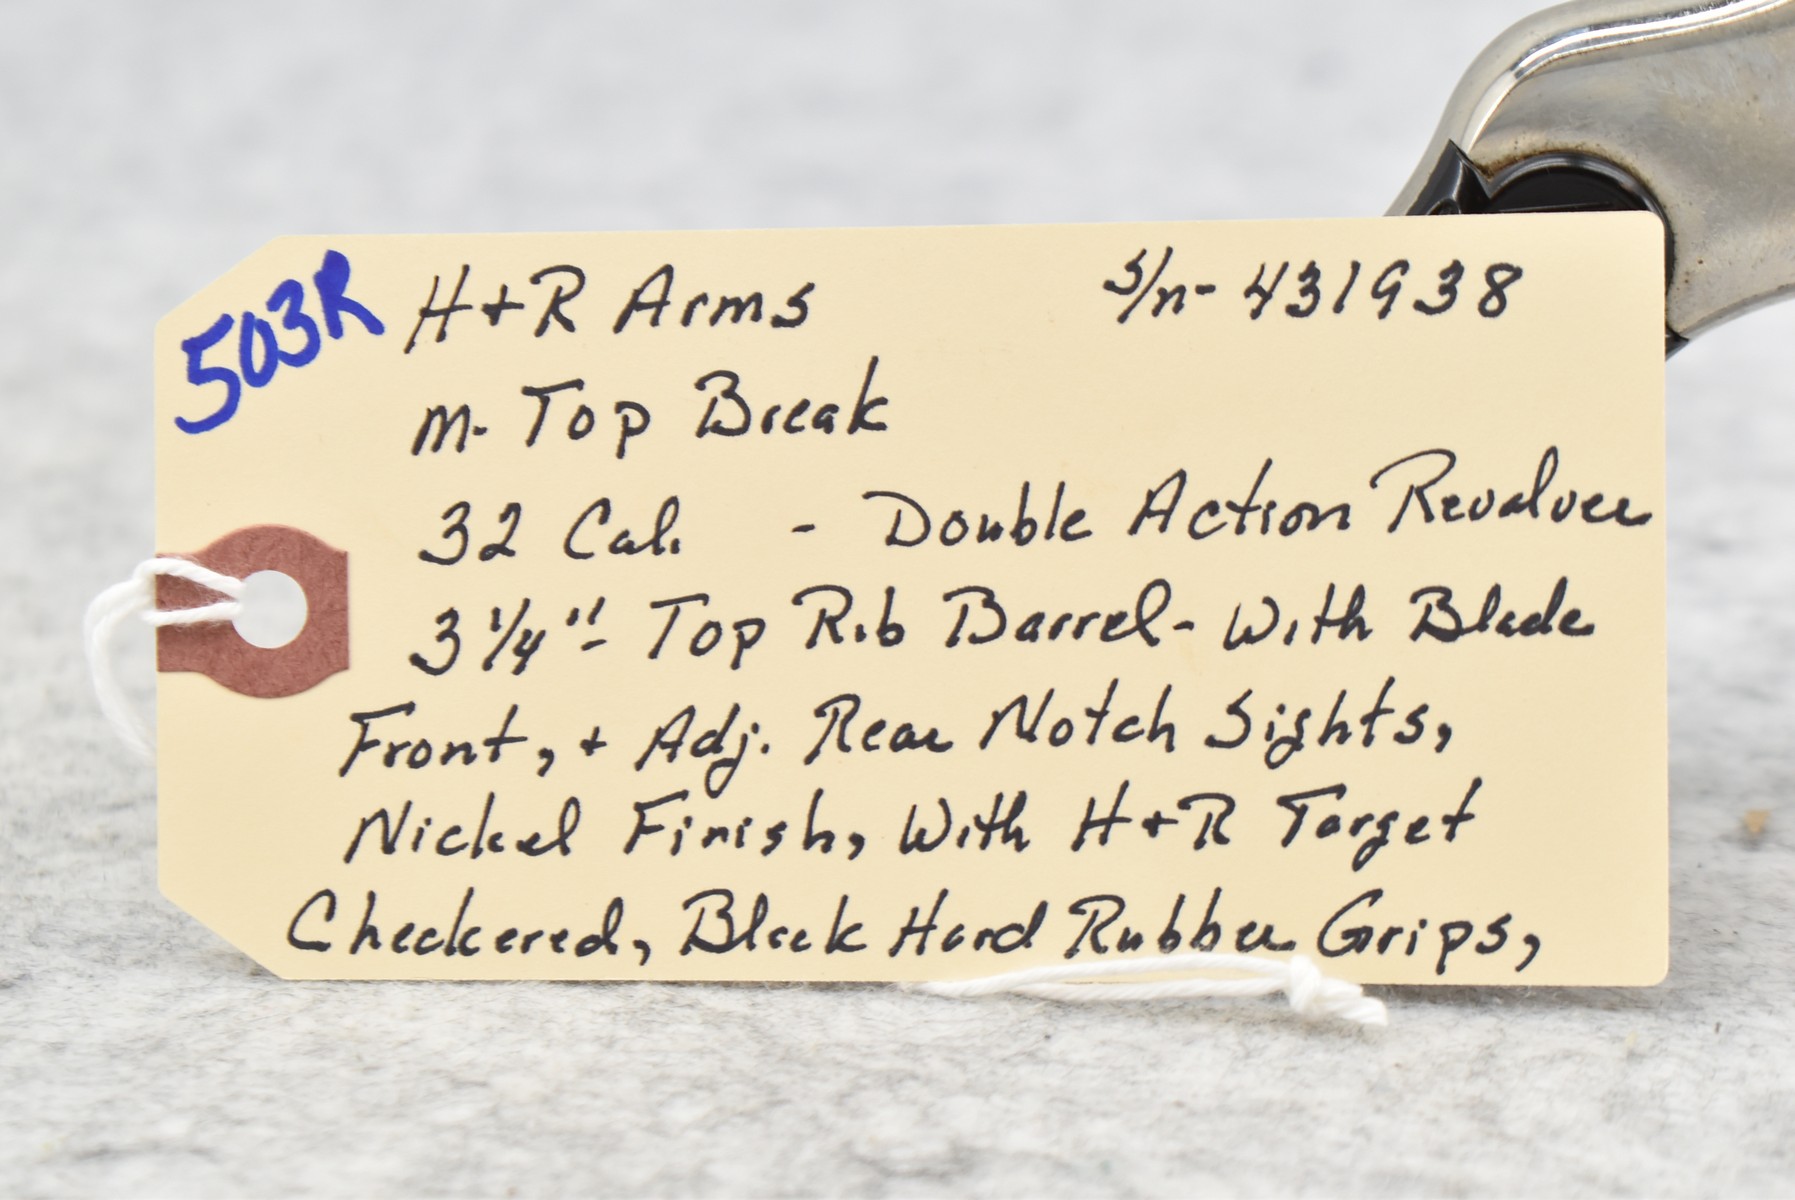 503R
H+R Arms S/n- 431938
M- Top Break
32 Cal. - Double Action Revolver
3 1/4"- Top Rib Barrel- With Blade
Front, + Adj. Rear Notch Sights,
Nickel Finish, With H+R Target
Checkered, Black Hard Rubber Grips,